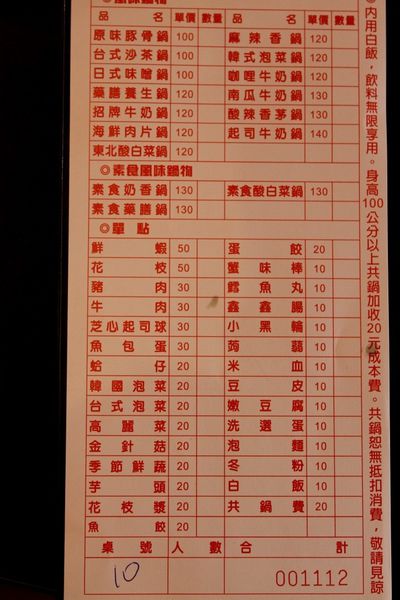 ◎風味鍋物
品 名 單價 數量 品 名 單價 數量
原味豚骨鍋 100 麻辣香鍋 120
台式沙茶鍋 100 韓式泡菜鍋 120
日式味噌鍋 100 咖哩牛奶鍋 120
藥膳養生鍋 120 南瓜牛奶鍋 130
招牌牛奶鍋 120 酸辣香茅鍋 130
海鮮肉片鍋 120 起司牛奶鍋 140
東北酸白菜鍋 120
◎素食風味鍋物
素食奶香鍋 130 素食酸白菜鍋 130
素食藥膳鍋 130
◎單點
鮮蝦 50 蛋餃 20
花枝 50 蟹味棒 10
豬肉 30 鱈魚丸 10
牛肉 30 鑫鑫腸 10
芝心起司球 30 小黑輪 10
魚包蛋 30 蒟蒻 10
蛤仔 20 米血 10
韓國泡菜 20 豆皮 10
台式泡菜 20 嫩豆腐 10
高麗菜 20 洗選蛋 10
金針菇 20 泡麵 10
季節鮮蔬 20 冬粉 10
芋頭 20 白飯 10
花枝漿 20 共鍋費 20
魚餃 20
桌號 人數 合計
10 001112
◎內用白飯，飲料無限享用。身高100公分以上共鍋加收20元成本費。共鍋恕無抵扣消費，敬請見諒